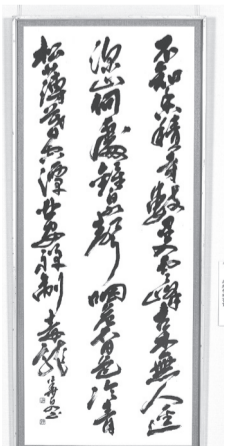 不知香積寺數里入雲峰古木無人逕
深山何處鐘泉聲咽危石日色冷青
松薄暮空潭曲安禪制毒龍